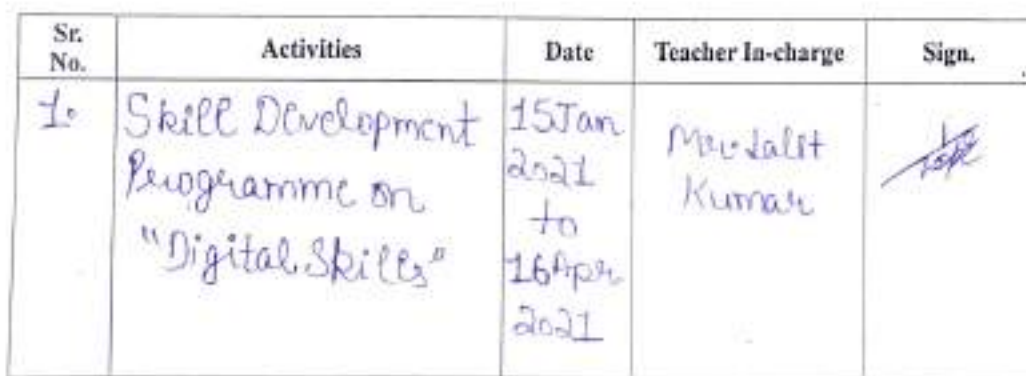 Sr. No.
Activities
Date
Teacher In-charge
Sign.
1.
Skill Development
Programme on
"Digital Skills"
15 Jan
2021
to
16 Apr
2021
Mr. Lalit
Kumar